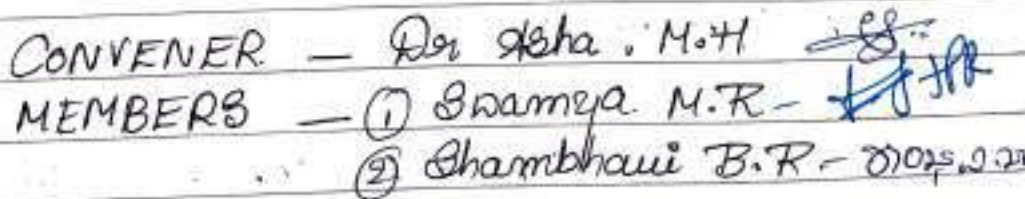 CONVENER — Dr Asha . M.H
MEMBERS — ① Swamya. M.R -
② Shambhavi B.R. -